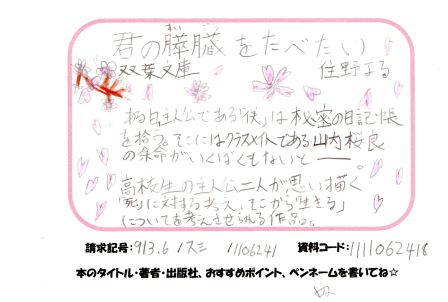 すいぞう
君の膵臓をたべたい
双葉文庫 住野よる
ある日主人公である「僕」は秘密の日記帳
を拾う。そこにはクラスメイトである山内桜良
の余命がいくばくもないと――
高校生の主人公二人が思い描く
「死」に対する考え、そこから「生きる」
についてを考えさせられる作品。
請求記号:913.6 /スミ /1106241 資料コード:1111062418
本のタイトル・著者・出版社、おすすめポイント、ペンネームを書いてね☆